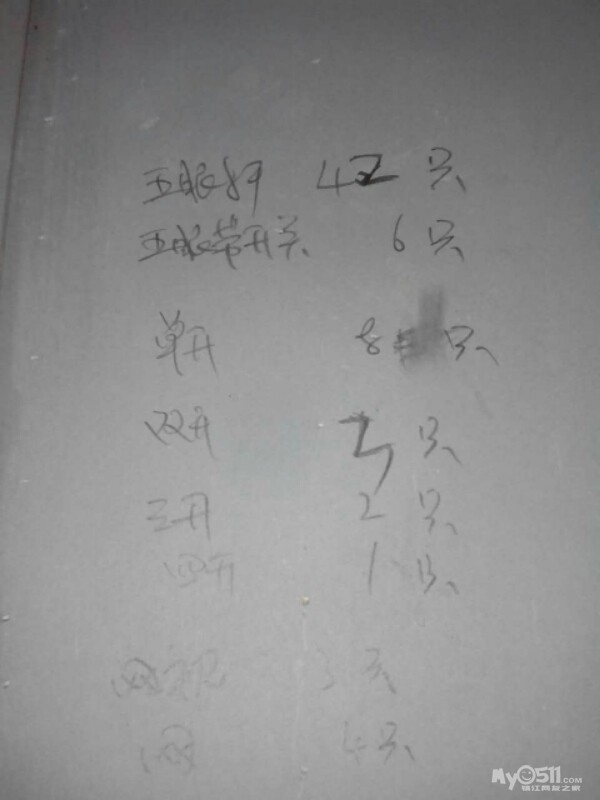 五眼 42 只
五眼带开关 6 只
单开 8 只
双开 5 只
三开 2 只
四开 1 只
网视 3 只
网 4 只
My0511.com
镇江网友之家